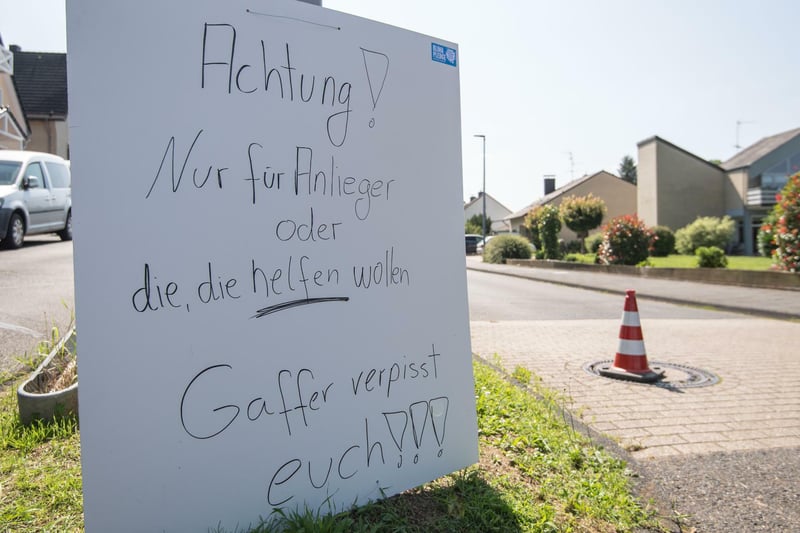 Achtung!
Nur für Anlieger
oder
die, die helfen wollen
Gaffer verpisst
euch!!!